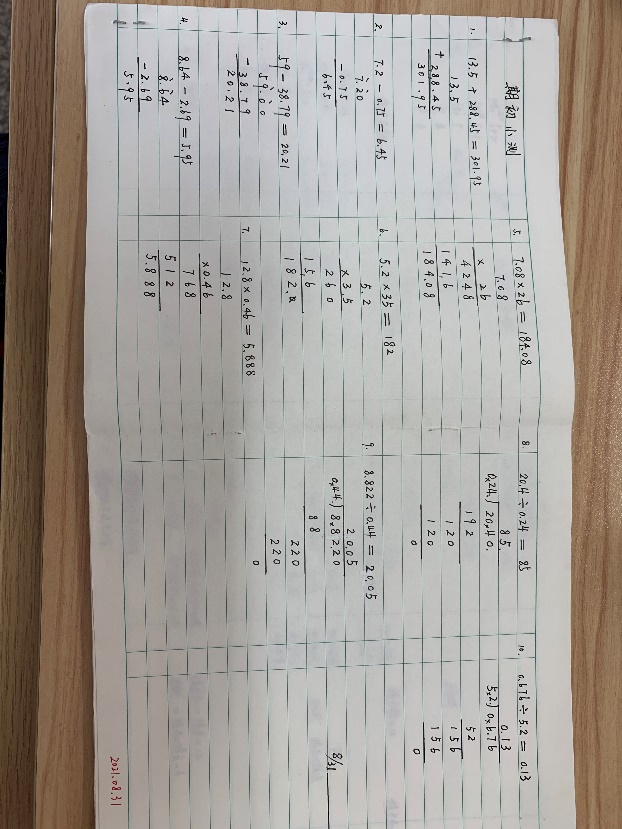 期初小测
1. 13.5 + 288.45 = 301.95
13.5
+ 288.45
301.95
2. 7.2 - 0.75 = 6.45
7.20
- 0.75
6.45
3. 59 - 38.79 = 20.21
59.00
- 38.79
20.21
4. 8.64 - 2.69 = 5.95
8.64
- 2.69
5.95
5. 7.08 × 26 = 184.08
7.08
× 26
4248
1416
184.08
6. 5.2 × 35 = 182
5.2
× 3.5
260
156
182.0
7. 12.8 × 0.46 = 5.888
12.8
× 0.46
768
512
5.888
8. 20.4 ÷ 0.24 = 85
85.
0.24.) 20.40.
192
120
120
0
9. 8.822 ÷ 0.44 = 20.05
20.05
0.44.) 8.8220
88
220
220
0
10. 0.676 ÷ 5.2 = 0.13
0.13
5.2.) 0.6.76
52
156
156
0
8/31
2021.08.31